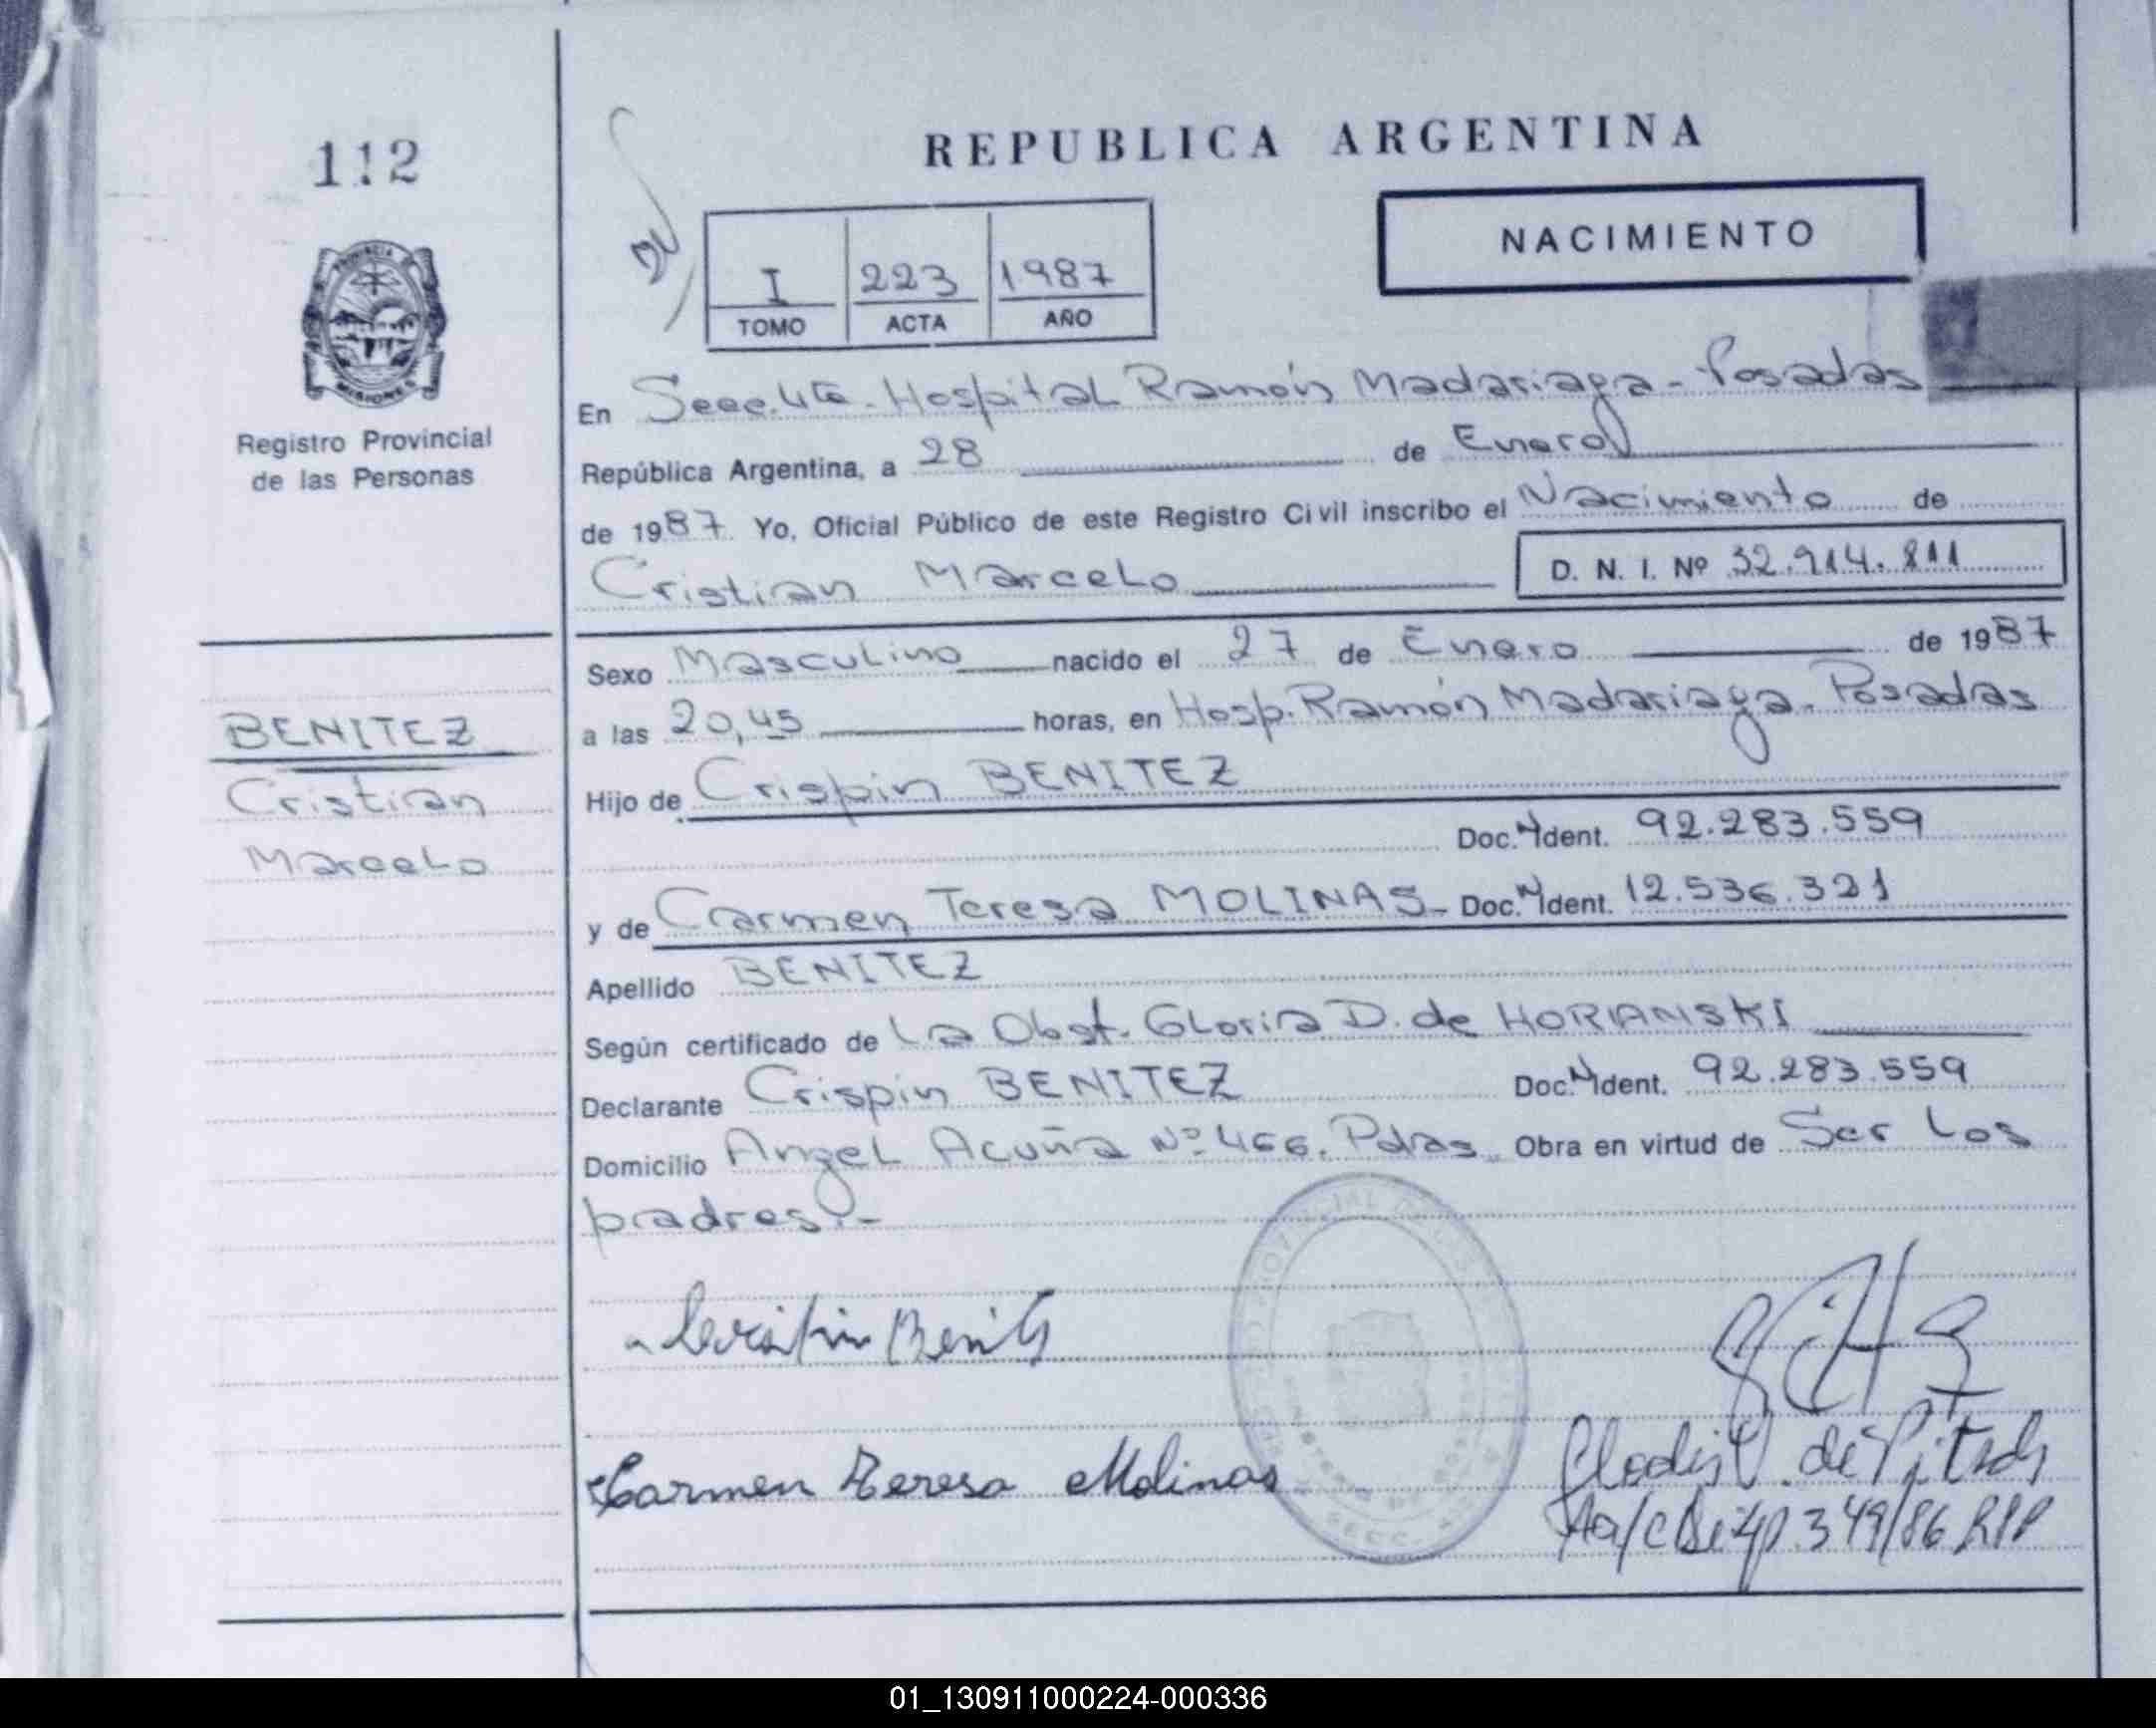 112
REPUBLICA ARGENTINA
NACIMIENTO
I 223 1987
TOMO ACTA AÑO
PROVINCIA
MISIONES
Registro Provincial
de las Personas
En Secc. 4ta. Hospital Ramón Madariaga - Posadas
República Argentina, a 28 de Enero
de 1987. Yo, Oficial Público de este Registro Civil inscribo el Nacimiento de
Cristian Marcelo D. N. I. Nº 32.914.811
Sexo Masculino nacido el 27 de Enero de 1987
a las 20,45 horas, en Hosp. Ramón Madariaga. Posadas
BENITEZ
Cristian
Marcelo
Hijo de Crispin BENITEZ
Doc. N Ident. 92.283.559
y de Carmen Teresa MOLINAS - Doc. N Ident. 12.536.321
Apellido BENITEZ
Según certificado de La Obst. Gloria D. de HORIANSKI
Declarante Crispin BENITEZ Doc. N Ident. 92.283.559
Domicilio Angel Acuña Nº 466. Pdas. Obra en virtud de Ser los
padres.-
Benitez
Carmen Teresa Molinas
de
349/86 RPP
01_130911000224-000336